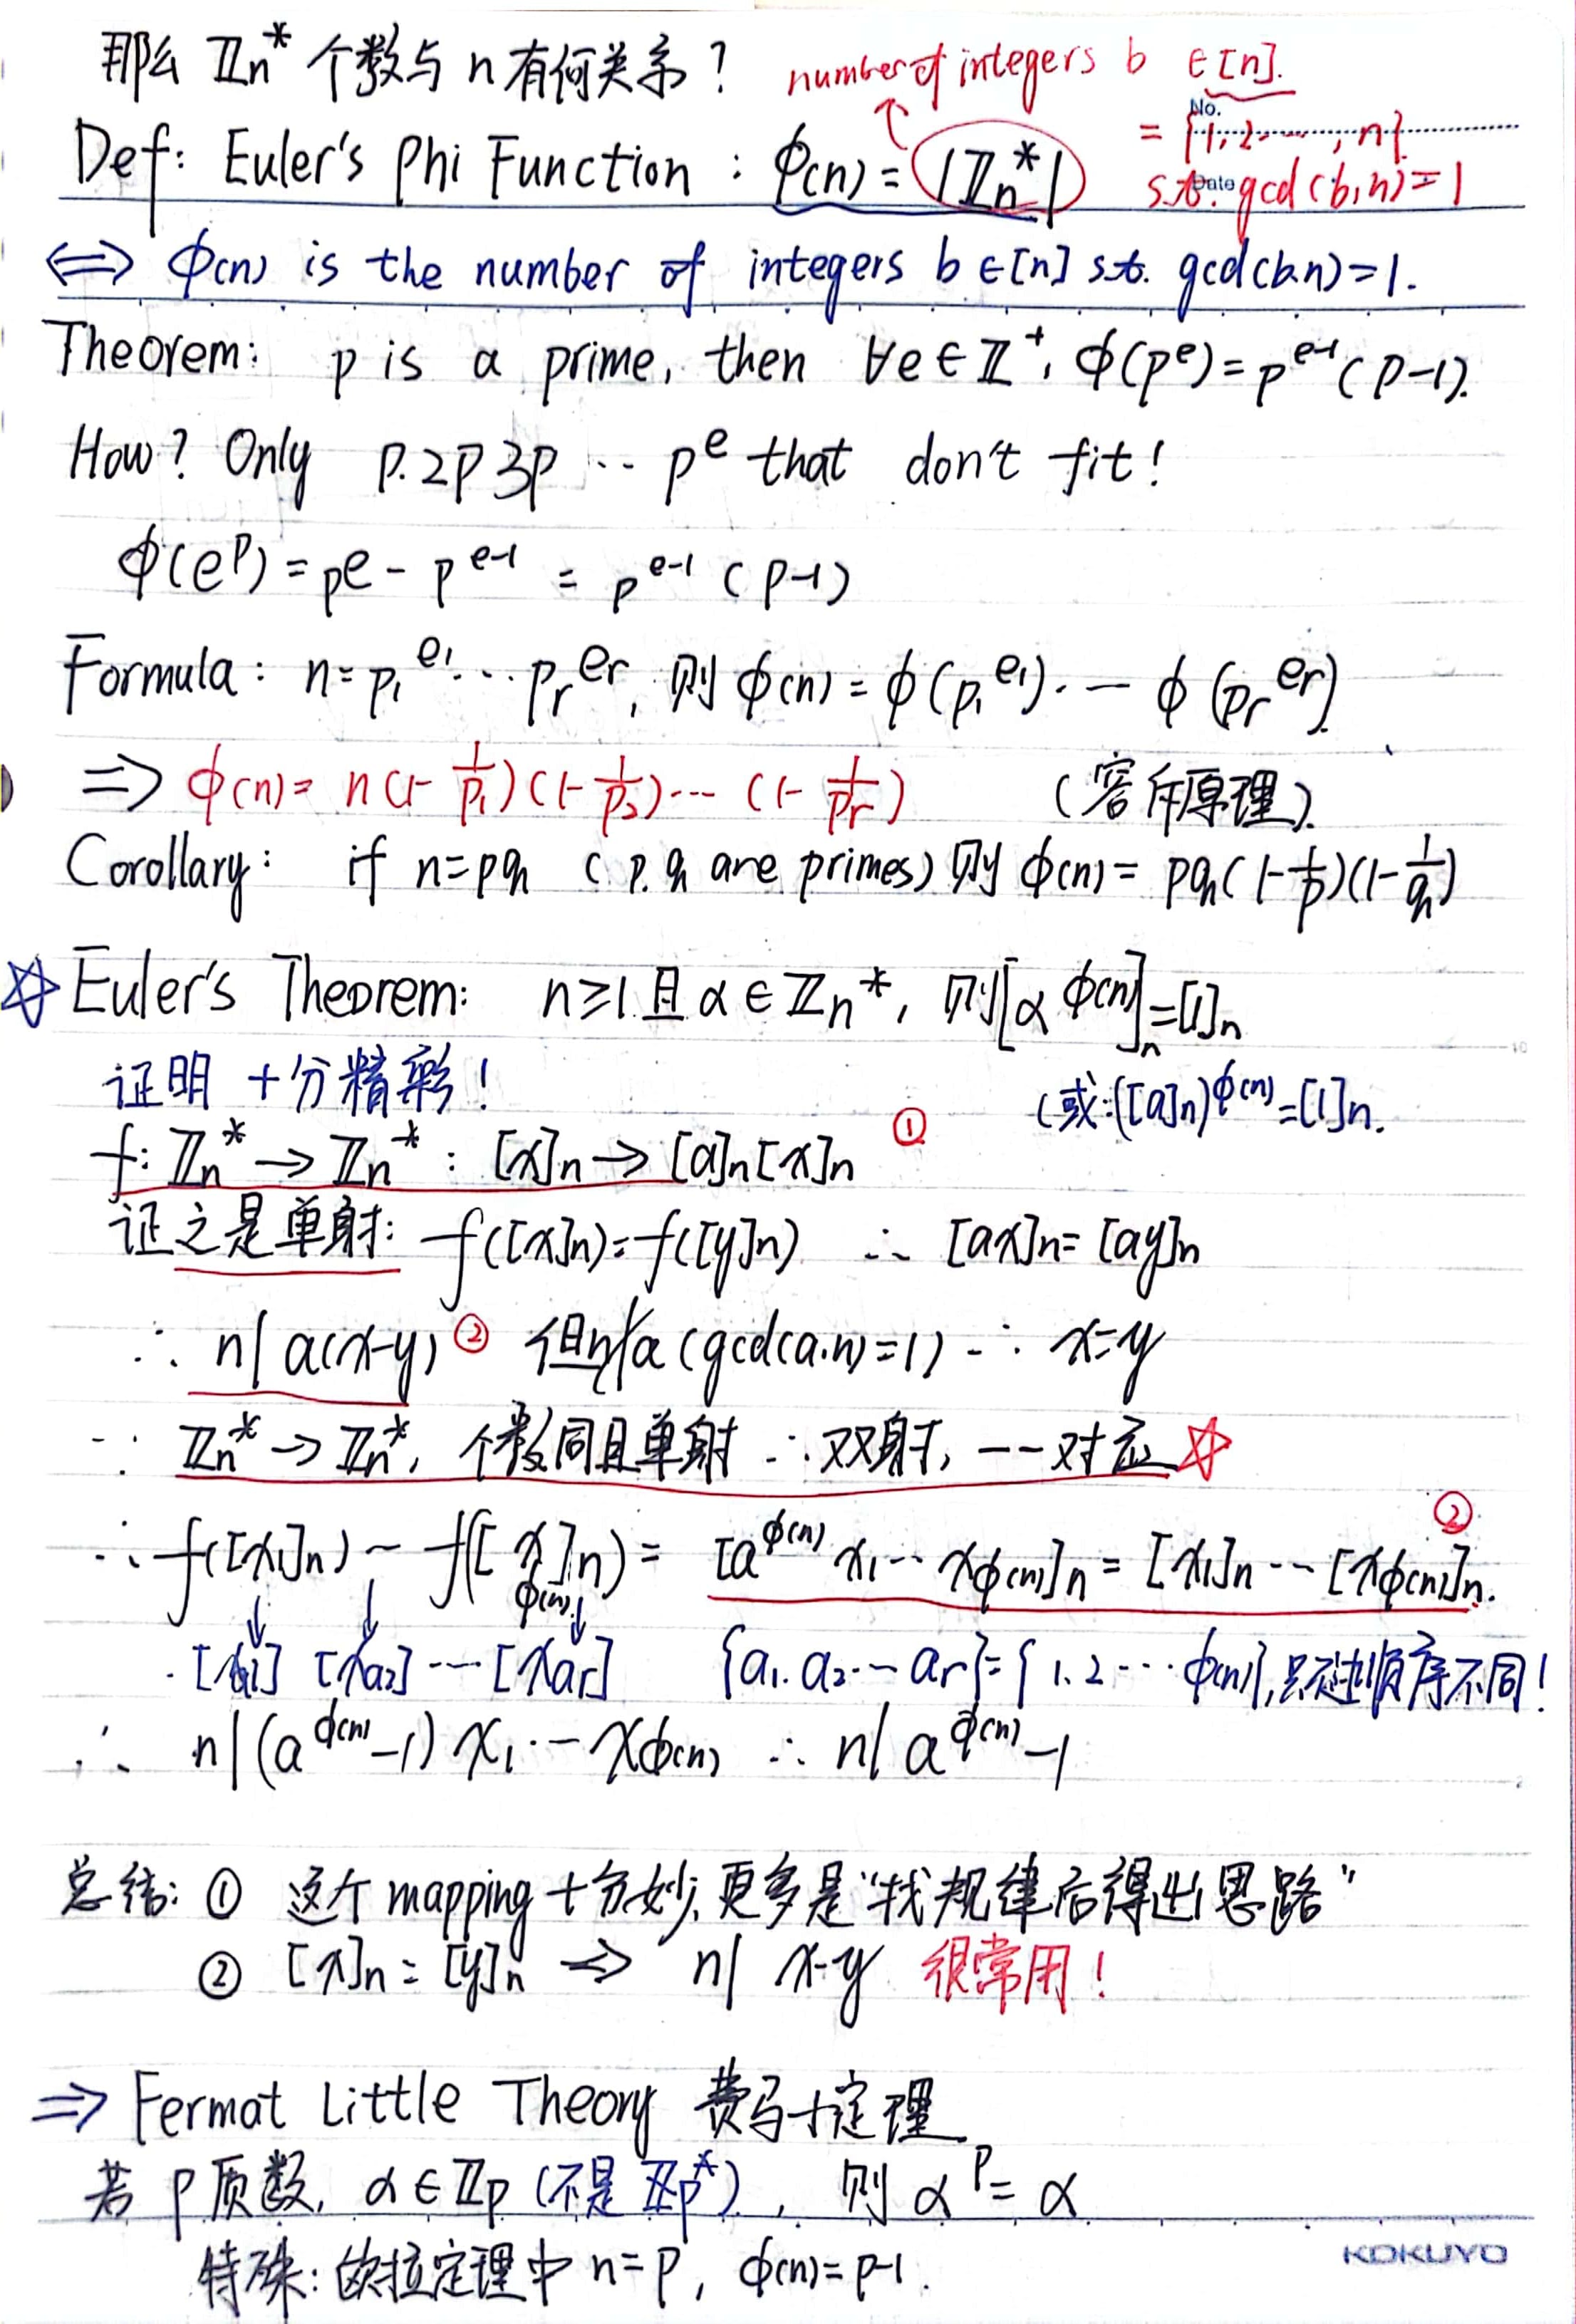 那么 ℤn* 个数与 n 有何关系？
number of integers b ∈[n].
No.
= {1,2···, n}
Date
s.t. gcd(b,n)=1
Def: Euler's Phi Function : ϕ(n) = |ℤn*|
⟺ ϕ(n) is the number of integers b∈[n] s.t. gcd(b.n)=1.
Theorem: p is a prime, then ∀e∈ℤ⁺, ϕ(p^e)=p^(e-1)(p-1).
How? Only p.2p 3p ··· p^e that don't fit!
ϕ(e^p)=p^e - p^(e-1) = p^(e-1) (p-1)
Formula: n=p₁^e₁···pr^er, 则 ϕ(n)=ϕ(p₁^e₁)·— ϕ(pr^er).
⟹ ϕ(n)= n(1-1/p₁)(1-1/p₂)···(1-1/pr) （容斥原理）.
Corollary: if n=pq (p.q are primes) 则 ϕ(n)= pq(1-1/p)(1-1/q)
☆ Euler's Theorem: n≥1 且 α∈ℤn*, 则[α^ϕ(n)]n=[1]n
证明 十分精彩！
(或:([a]n)^ϕ(n)=[1]n.
f: ℤn*→ℤn* : [x]n→[a]n[x]n ①
证之是单射: f([x]n)=f([y]n) ∴ [ax]n=[ay]n
∴ n|a(x-y) ② 但n∤a (gcd(a.n)=1) ∴ x=y
∵ ℤn*→ℤn*, 个数同且单射 ∴双射, 一一对应 ☆
∴ f([x₁]n) ~ f([xϕ(n)]n) = [a^ϕ(n) x₁···xϕ(n)]n = [x₁]n···[xϕ(n)]n. ②
[xa₁] [xa₂]···[xar] {a₁.a₂···ar}={1.2···ϕ(n)},只不过顺序不同！
∴ n|(a^ϕ(n)-1) x₁···xϕ(n) ∴ n| a^ϕ(n)-1
总结: ① 这个 mapping 十分妙, 更多是“找规律后得出思路”
② [x]n=[y]n ⟹ n| x-y 很常用！
⟹ Fermat Little Theory 费马小定理
若 p 质数, α∈ℤp (不是 ℤp*), 则 α^p=α
特殊: 欧拉定理中 n=p, ϕ(n)=p-1.
KOKUYO